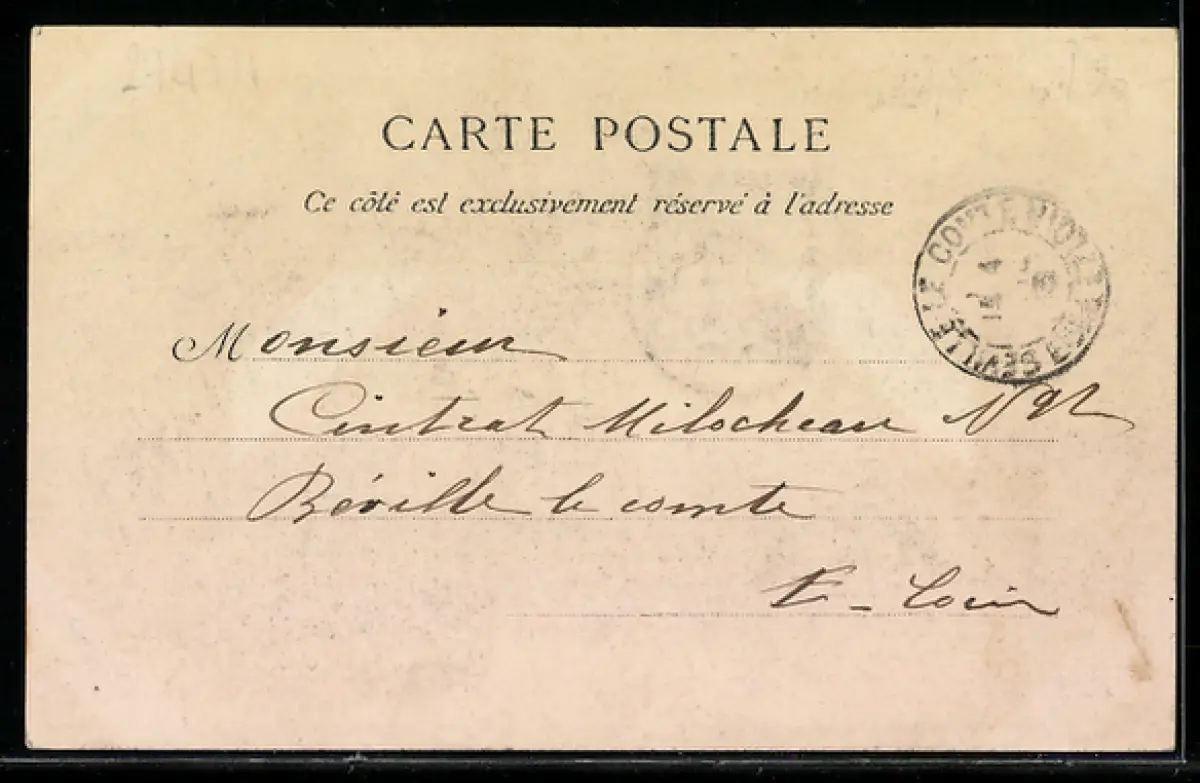 CARTE POSTALE
Ce côté est exclusivement réservé à l'adresse
Monsieur
Cintrat Milocheau
Béville le comte
E_ Loir